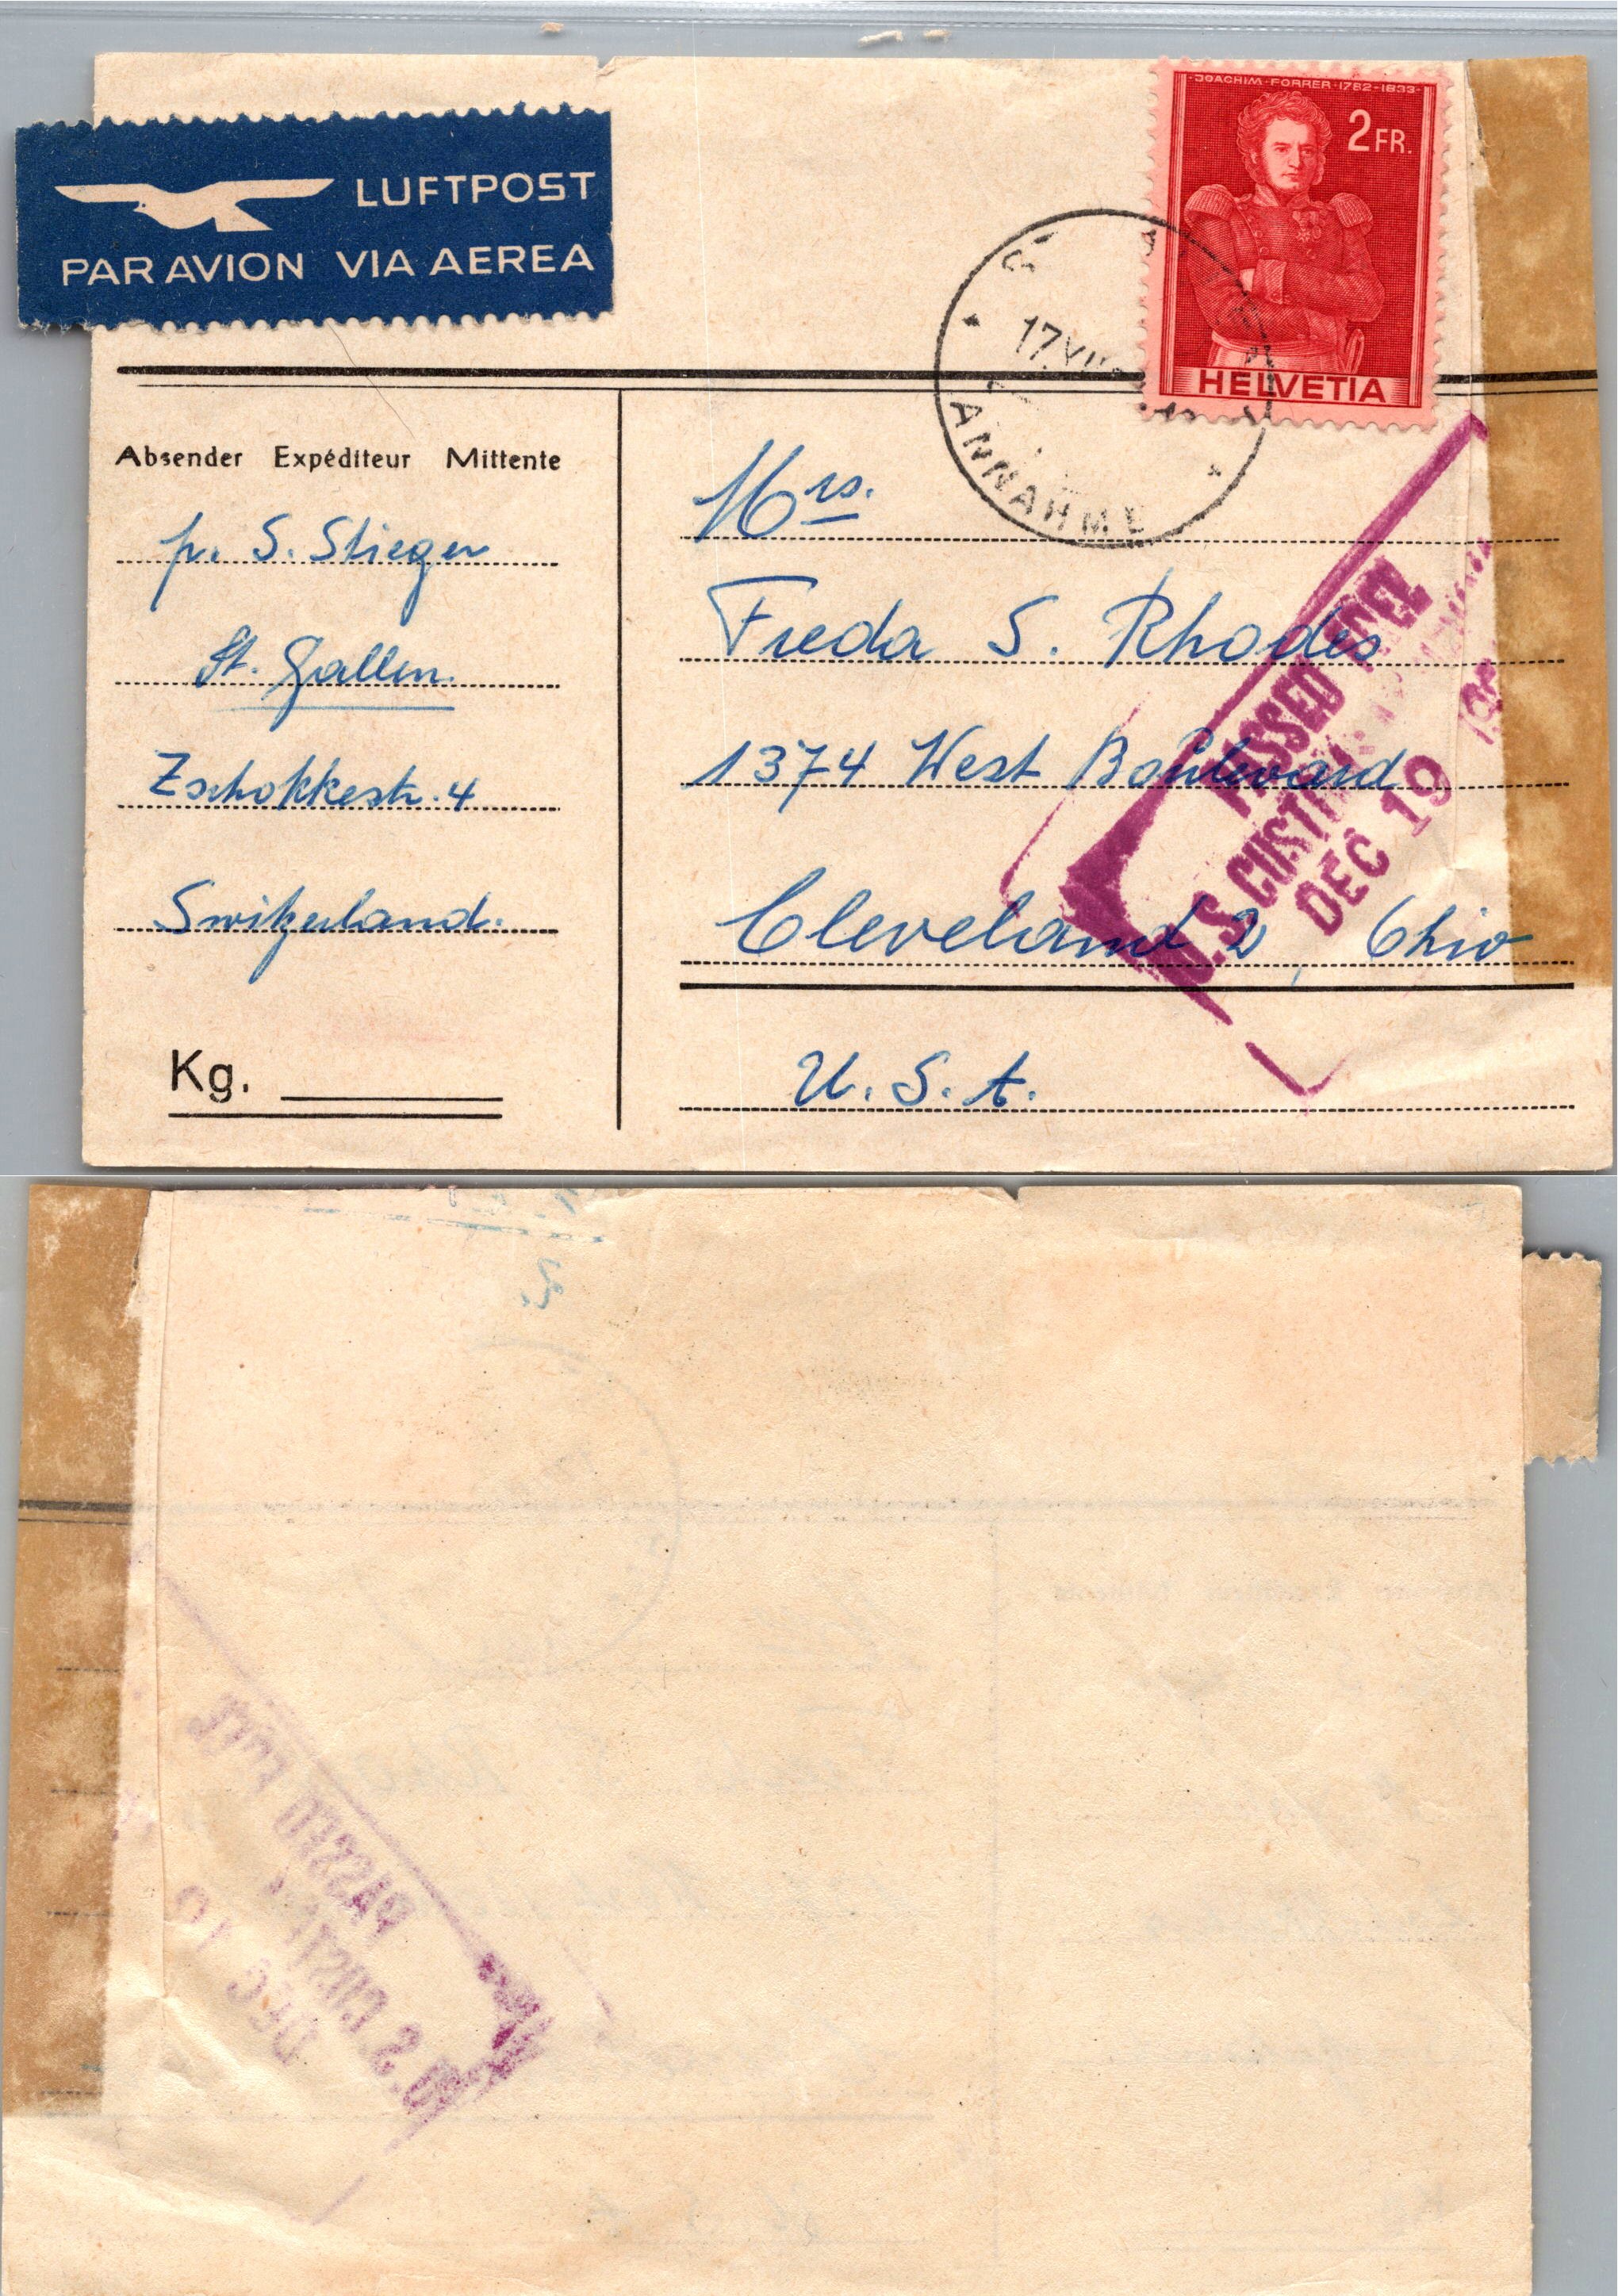 LUFTPOST
PAR AVION VIA AEREA
JOACHIM-FORRER-1782-1833
2 FR.
HELVETIA
17.VII
ANNAHME
Absender Expéditeur Mittente
p. S. Stieger
St. Gallen.
Zschokkestr. 4
Switzerland.
Kg.
Mrs.
Freda S. Rhodes
1374 West Boulevard
Cleveland 2, Ohio
U. S. A.
PASSED FREE
U.S. CUSTOMS
DEC 19